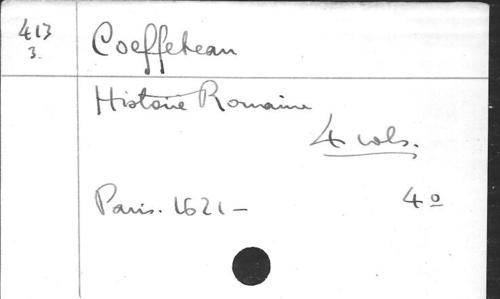 413
3.
Coeffeteau
Histoire Romaine
4 vols.
Paris. 1621 -
4º